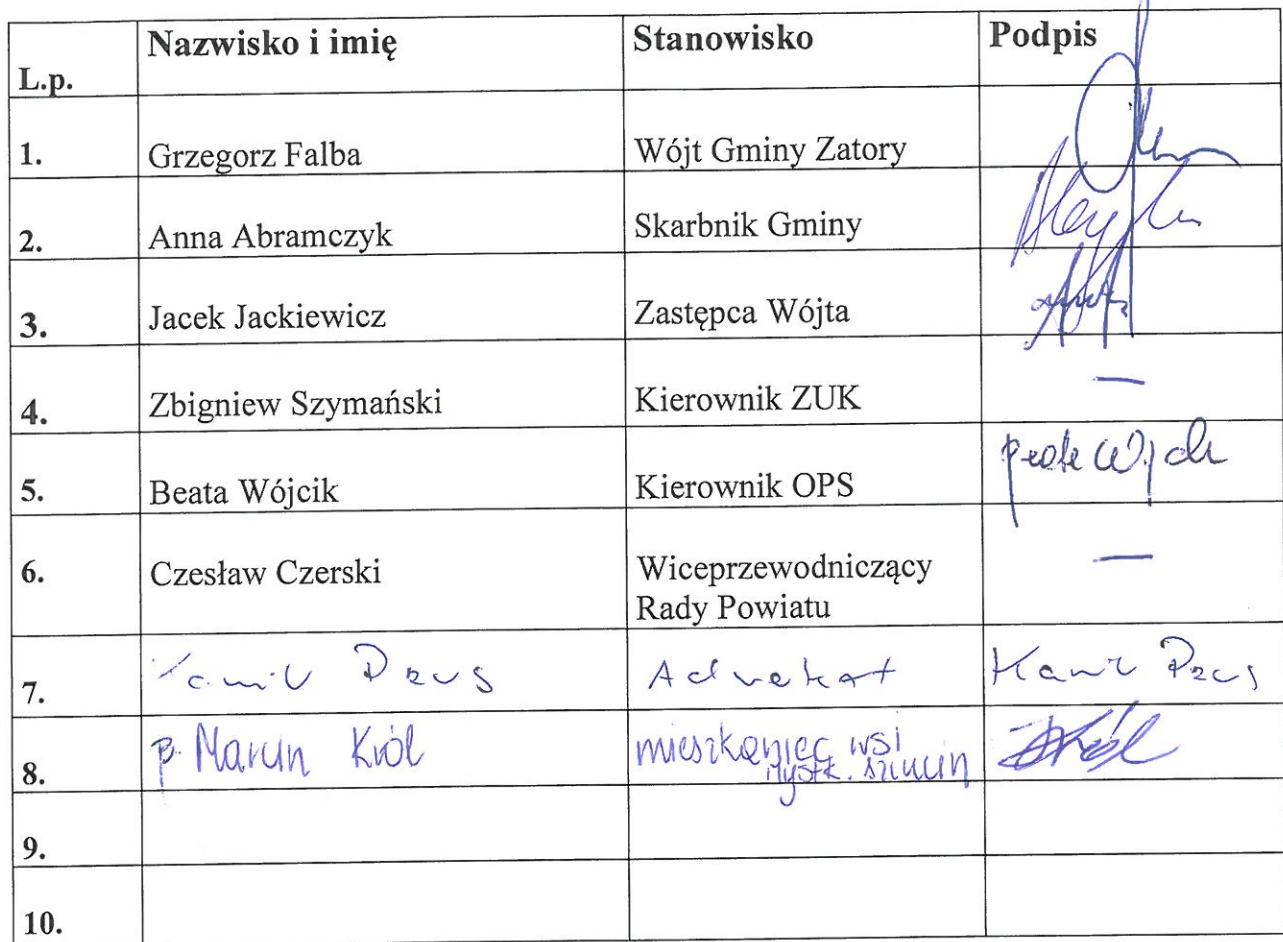 L.p. Nazwisko i imię Stanowisko Podpis
1. Grzegorz Falba Wójt Gminy Zatory
2. Anna Abramczyk Skarbnik Gminy
3. Jacek Jackiewicz Zastępca Wójta
4. Zbigniew Szymański Kierownik ZUK —
5. Beata Wójcik Kierownik OPS
6. Czesław Czerski Wiceprzewodniczący —
Rady Powiatu
7. Kamil Adwokat Kamil
8. p. Marcin Król mieszkaniec wsi
9.
10.